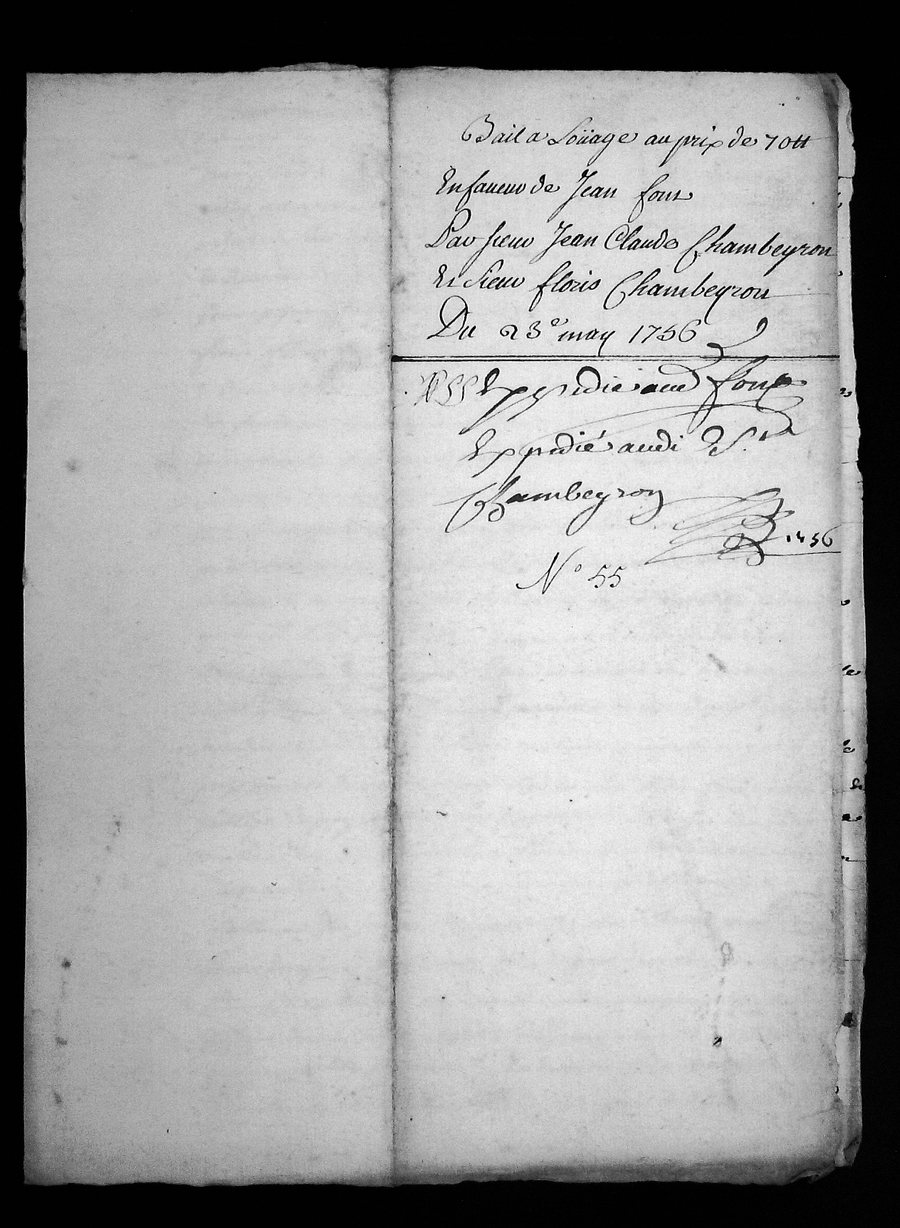 Bail a Loüage au prix de 70tt
En faveur de Jean font
Par sieur Jean Claude Chambeyron
Et Sieur floris Chambeyron
Du 23e may 1756
Expedié aud font
Expedié audi Sr
Chambeyron
1756
No 55